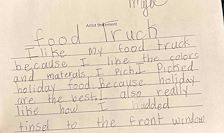 Artist Statement
Food Truck
I like my food truck
because I like the colors
and materials I Picked. Picked
holiday food because holiday
are the best. I also really
like how I added
tinsel to the front window